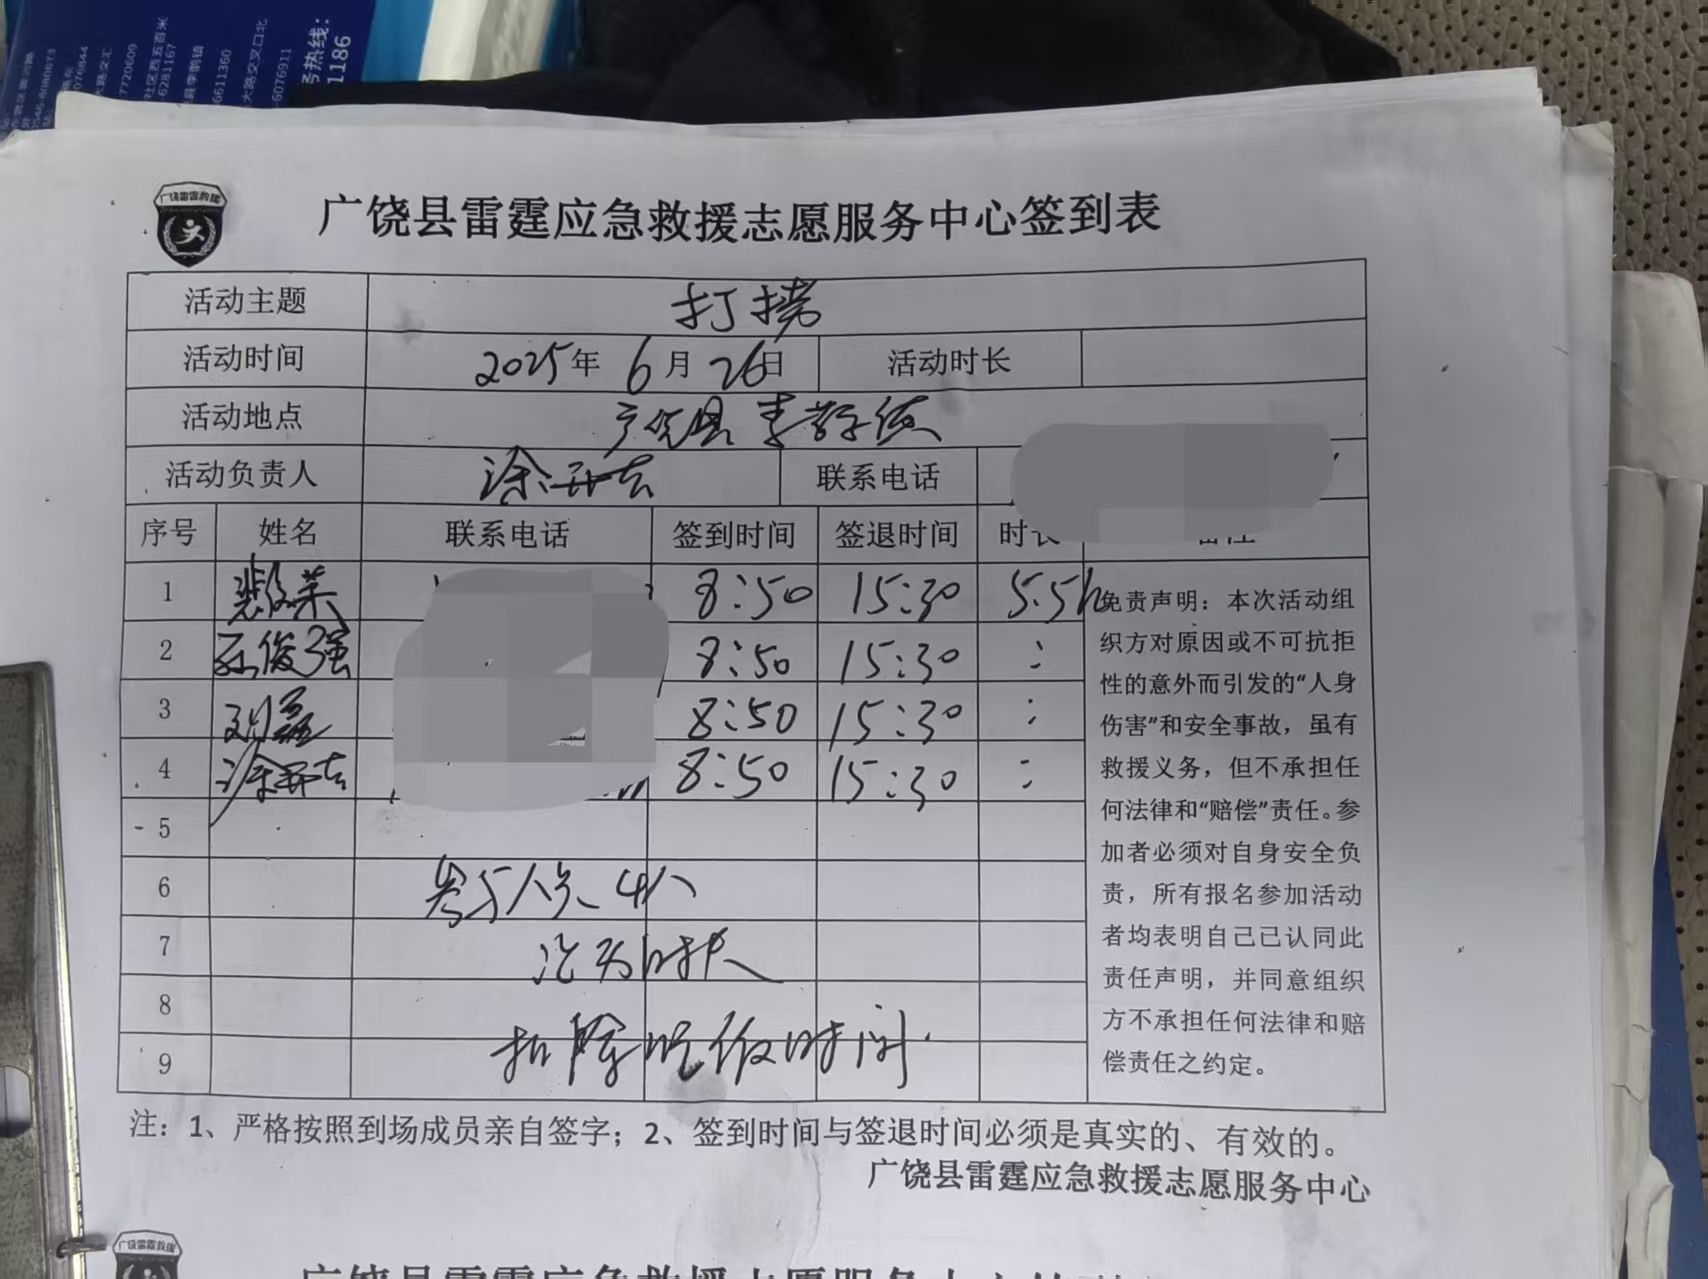 务热线:
1186
7720609
6281167
6611360
6076911
广饶雷霆救援
广饶县雷霆应急救援志愿服务中心签到表
活动主题 打捞
活动时间 2025年 6月 26日 活动时长
活动地点 广饶县李鹊镇
活动负责人 涂开吉 联系电话
序号 姓名 联系电话 签到时间 签退时间 时长 备注
1 8:50 15:30 5.5h
2 孙俊强 8:50 15:30 :
3 刘磊 8:50 15:30 :
4 涂开吉 8:50 15:30 :
5
6 参与人员 4人
7 时长
8
9 扣除吃饭时间.
免责声明：本次活动组
织方对原因或不可抗拒
性的意外而引发的“人身
伤害”和安全事故，虽有
救援义务，但不承担任
何法律和“赔偿”责任。参
加者必须对自身安全负
责，所有报名参加活动
者均表明自己已认同此
责任声明，并同意组织
方不承担任何法律和赔
偿责任之约定。
注：1、严格按照到场成员亲自签字；2、签到时间与签退时间必须是真实的、有效的。
广饶县雷霆应急救援志愿服务中心
广饶雷霆救援
广饶县雷霆应急救援志愿服务中心签到